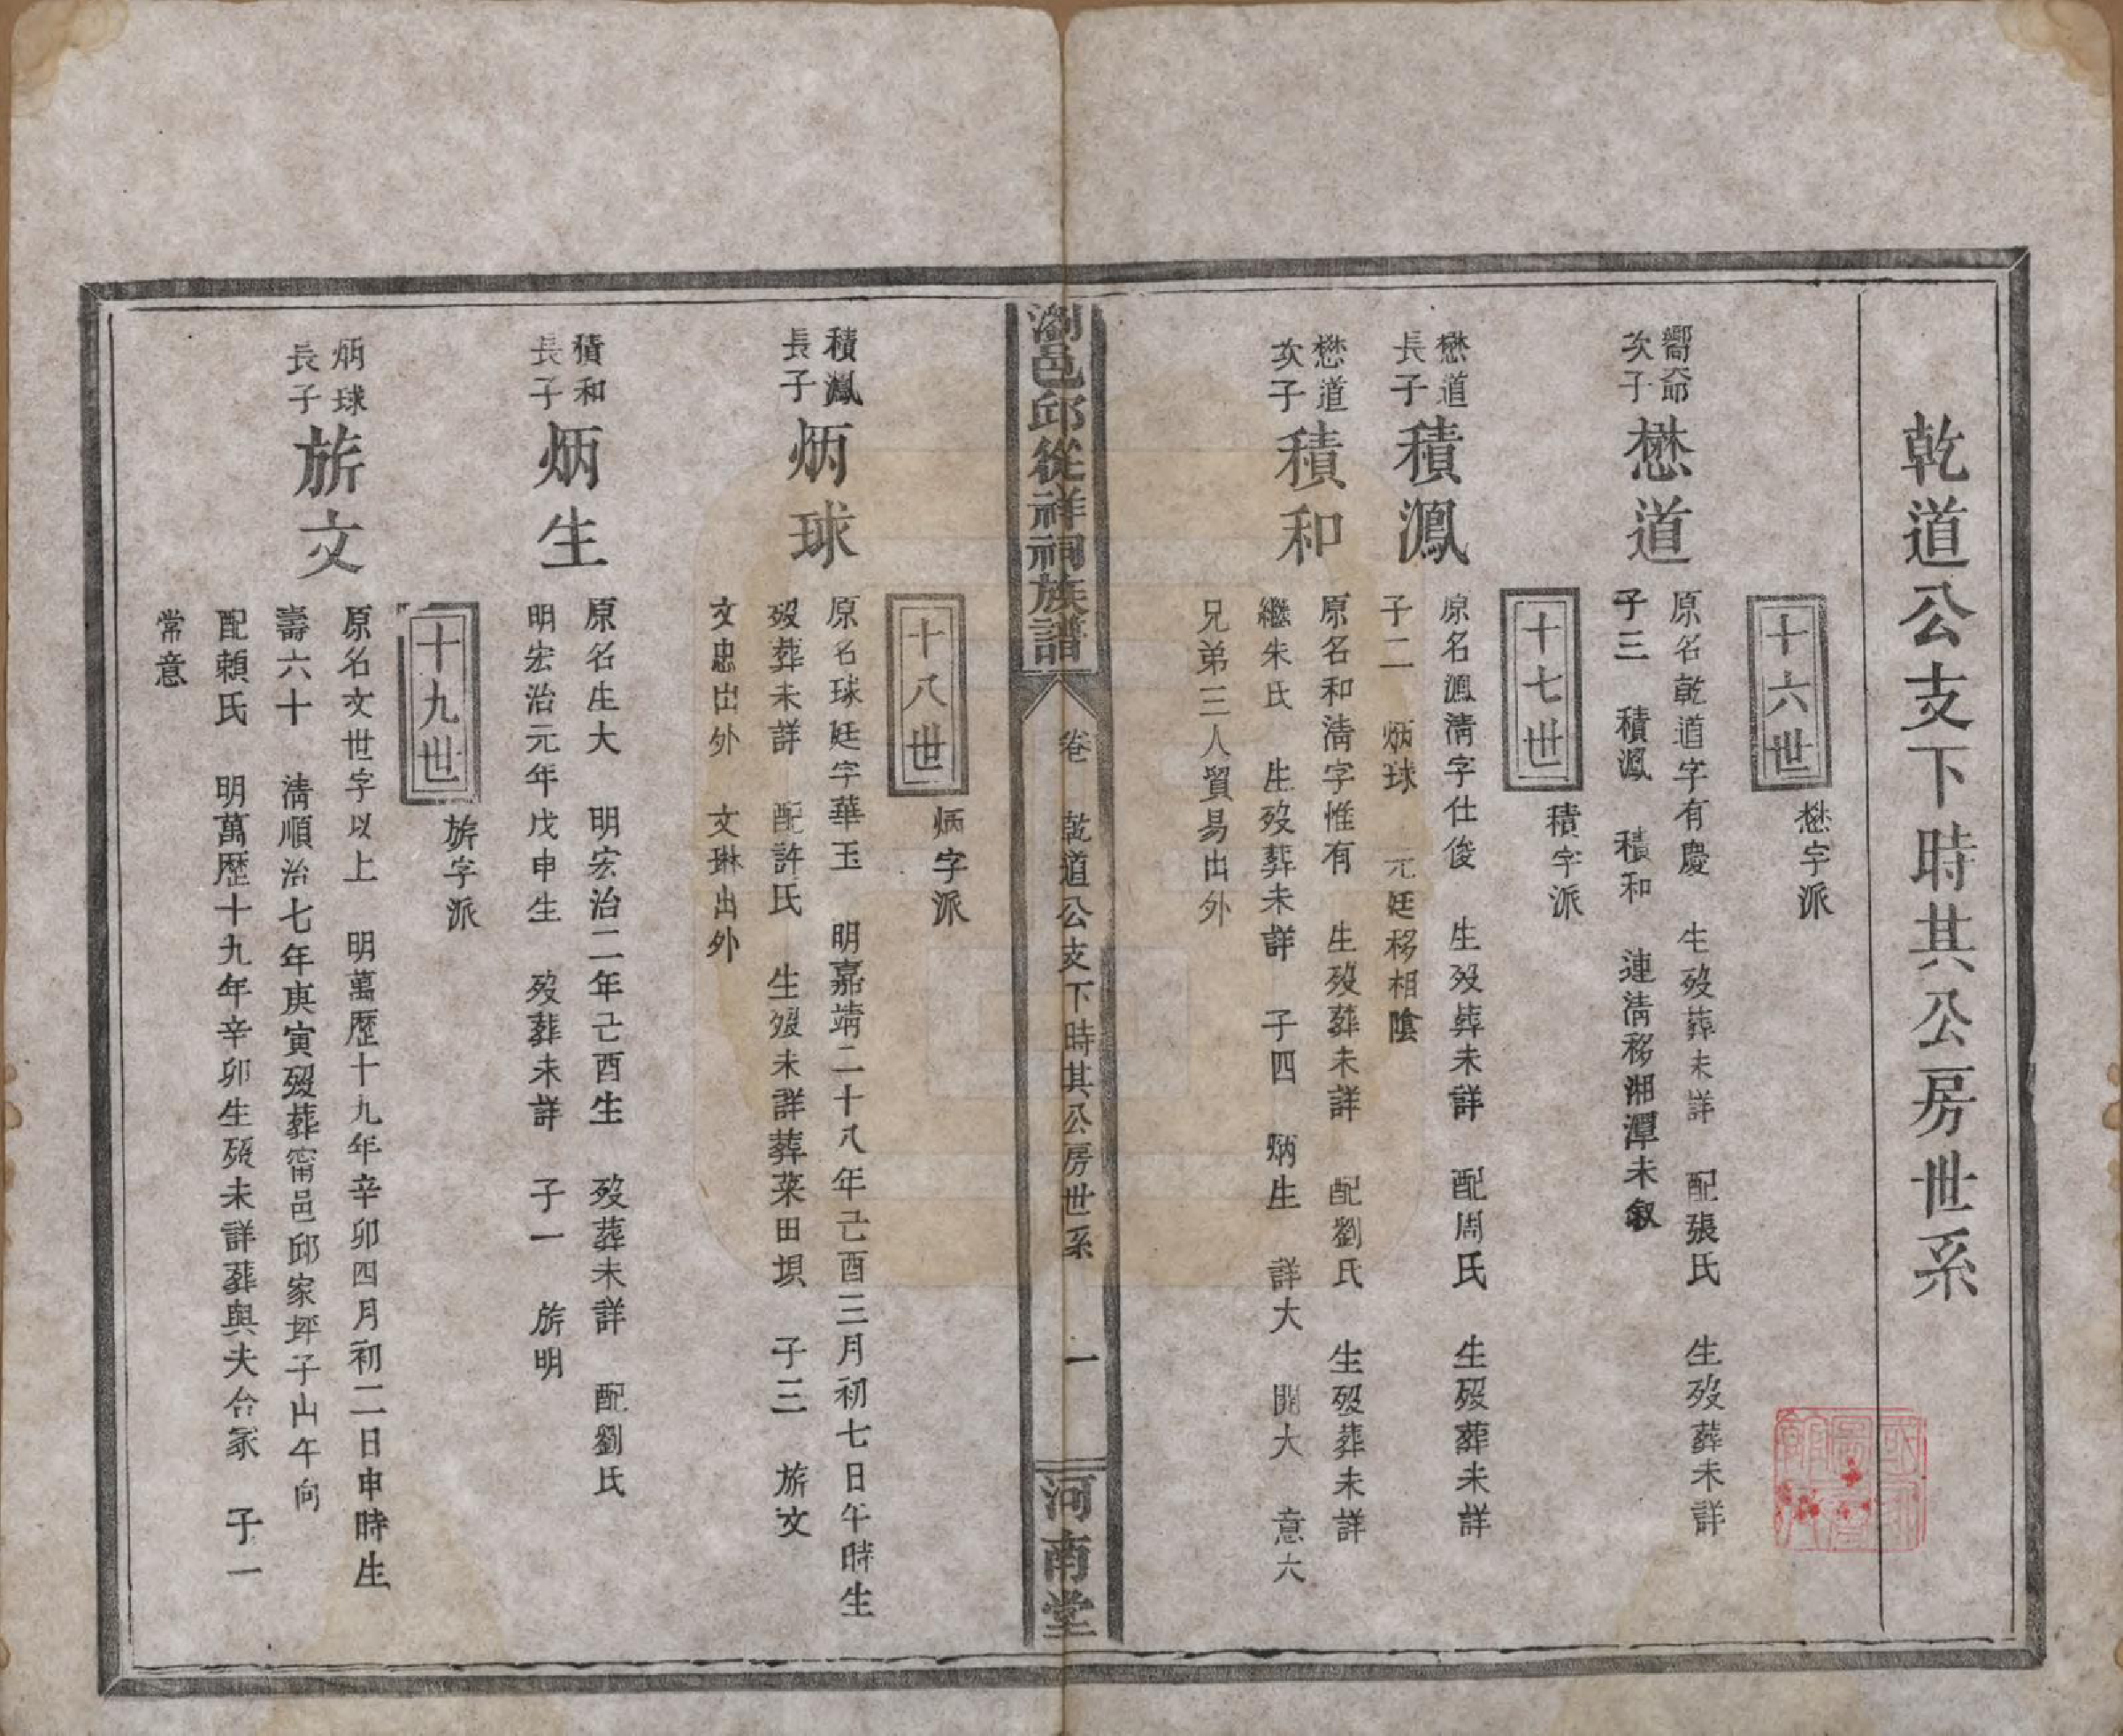 乾道公支下時其公房世系
十六世
懋字派
嚮
次子
懋道
原名乾道字有慶 生歿葬未詳 配張氏 生歿葬未詳
子三 積鳳 積和 連淸移湘潭未叙
十七世
積字派
懋道
長子
積鳳
原名鳳淸字仕俊 生歿葬未詳 配周氏 生歿葬未詳
子二 炳球 元廷移相陰
懋道
次子
積和
原名和淸字惟有 生歿葬未詳 配劉氏 生歿葬未詳
繼朱氏 生歿葬未詳 子四 炳生 詳大 開大 意六
兄弟三人貿易出外
瀏邑邱從祥祠族譜
卷 乾道公支下時其公房世系 一
河南堂
十八世
炳字派
積鳳
長子
炳球
原名球廷字華玉 明嘉靖二十八年己酉三月初七日午時生
歿葬未詳 配許氏 生歿未詳葬菜田垻 子三 旂文
文忠出外 文琳出外
積和
長子
炳生
原名生大 明宏治二年己酉生 歿葬未詳 配劉氏
明宏治元年戊申生 歿葬未詳 子一 旂明
十九世
旂字派
炳球
長子
旂文
原名文世字以上 明萬歷十九年辛卯四月初二日申時生
壽六十 淸順治七年庚寅歿葬甯邑邱家坪子山午向
配賴氏 明萬歷十九年辛卯生歿未詳葬與夫合冢 子一
常意